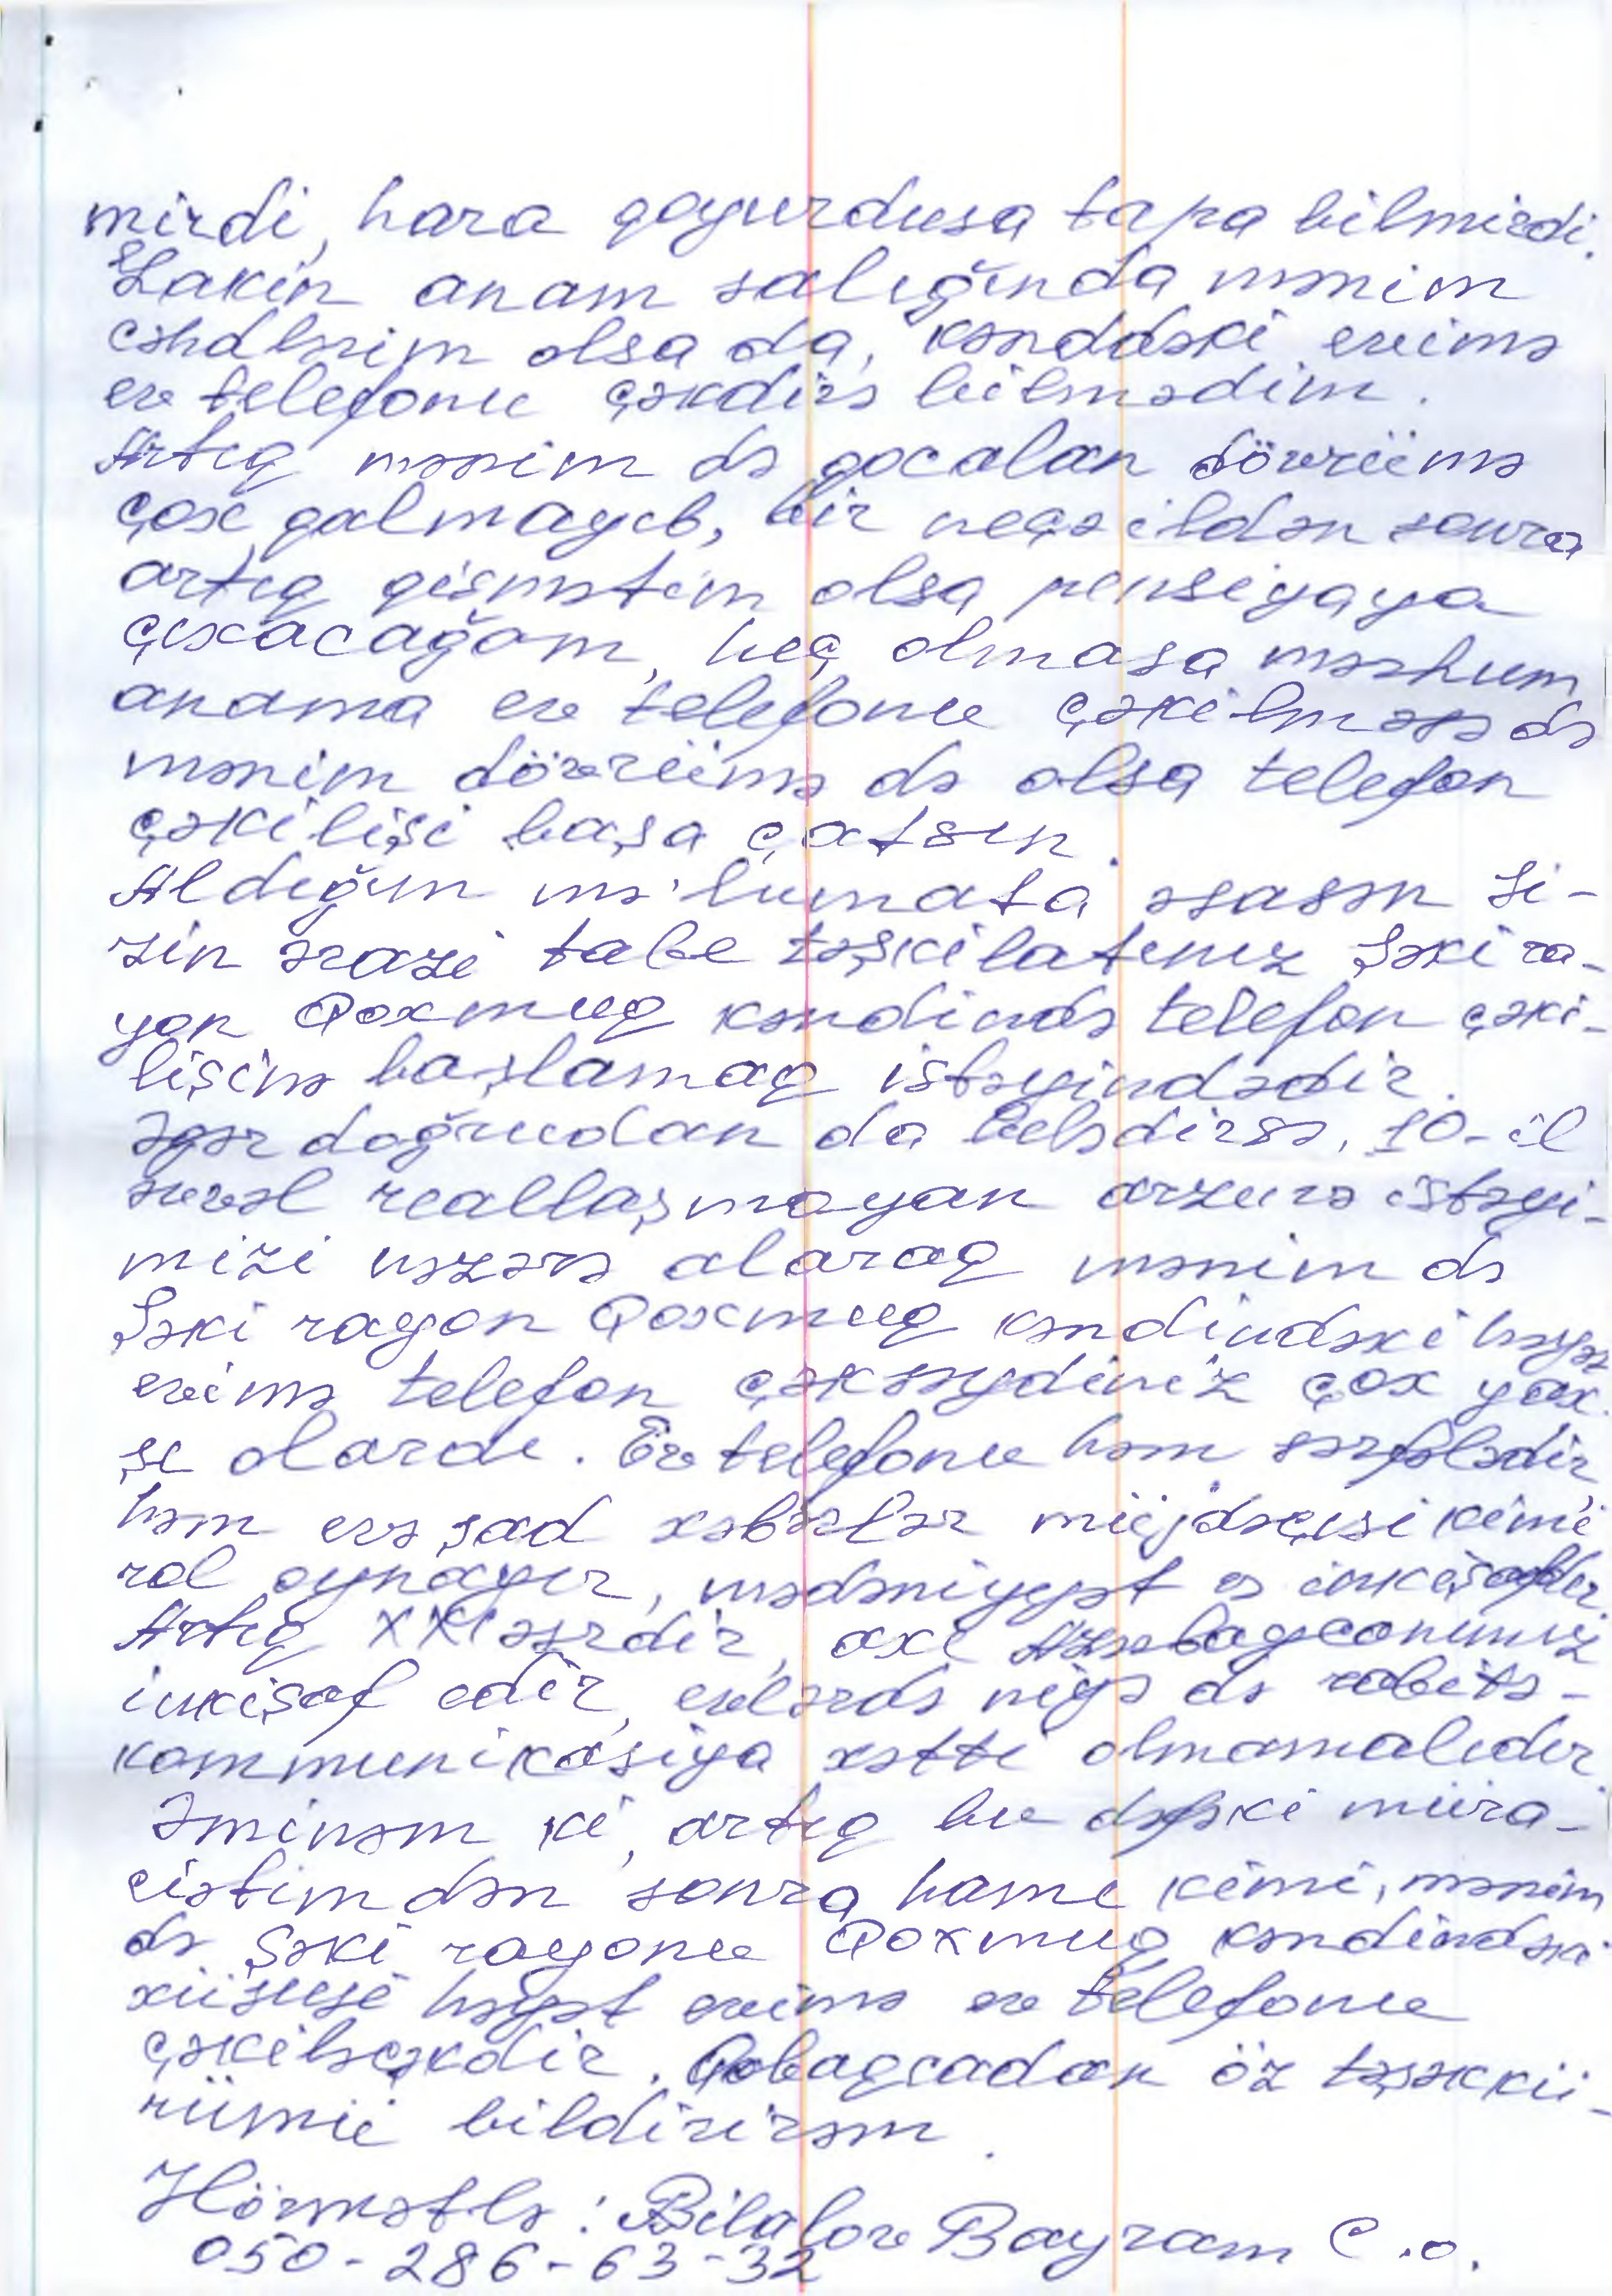 mirdi, hara qoyurdusa tapa bilmirdi.
Lakin anam salığında mənim
cəhdlərim olsa da, kənddəki evimə
ev telefonu çəkdirə bilmədim.
Artıq mənim də qocalan dövrümə
çox qalmayıb, bir neçə ildən sonra
artıq qismətim olsa pensiyaya
çıxacağam, heç olmasa mərhum
anama ev telefonu çəkilməsə də
mənim dövrümə də olsa telefon
çəkilişi başa çatsın.
Aldığım mə'lumata əsasən si-
zin ərazi tabe təşkilatınız Şəki ra-
yon Qoxmuq kəndində telefon çəki-
lişinə başlamaq istəyindədir.
Əgər doğrudan da belədirsə, 10-il
əvvəl reallaşmayan arzu və istəyi-
mizi nəzərə alaraq mənim də
Şəki rayon Qoxmuq kəndindəki həyət
evimə telefon çəksəydiniz çox yax-
şı olardı. Ev telefonu həm sərfəlidir,
həm evə şad xəbərlər müjdəçisi kimi
rol oynayır, mədəniyyət və inkişafdır.
Artıq XXI əsrdir, axı Azərbaycanımız
inkişaf edir, evlərdə niyə də rabitə-
kommunikasiya xətti olmamalıdır.
Əminəm ki, artıq bu dəfəki müra-
ciətimdən sonra hamı kimi, mənim
də Şəki rayonu Qoxmuq kəndindəki
xüsusi həyət evimə ev telefonu
çəkiləcəkdir. Qabaqcadan öz təşəkkü-
rümü bildirirəm.
Hörmətlə: Bilalov Bayram C.o.
050-286-63-32